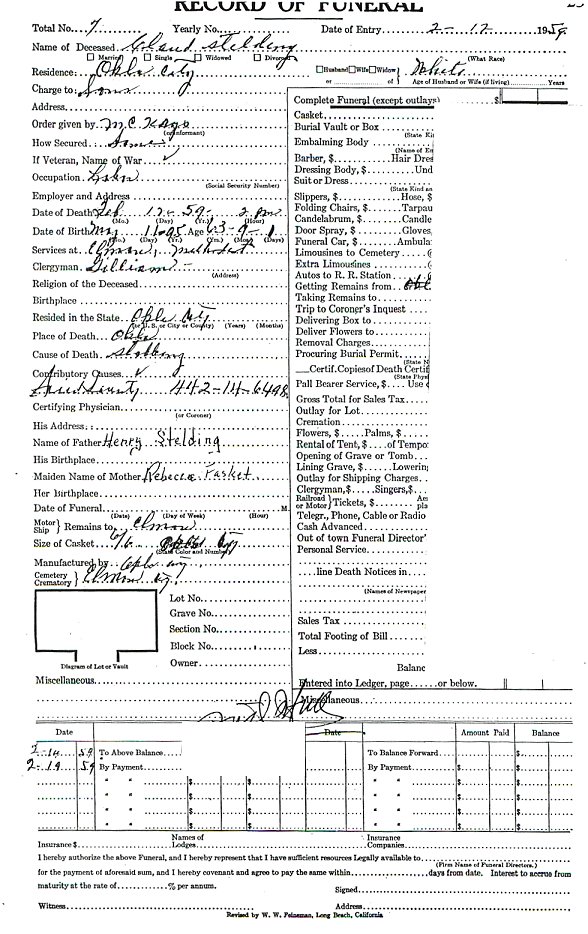 RECORD OF FUNERAL
Total No. 7 Yearly No. Date of Entry 2-12 1959
Name of Deceased Stelding
Married Single Widowed Divorced
(What Race)
Residence: Okla City Husband Wife Widow White
or of Age of Husband or Wife (if living) Years
Charge to: Sons
Address
Order given by M.C.
(or informant)
How Secured
If Veteran, Name of War
Occupation
(Social Security Number)
Employer and Address
Date of Death Feb. 12-59- 2 pm
(Mo.) (Day) (Yr.) (Hour)
Date of Birth May 11-95 Age 63-9-1
(Mo.) (Day) (Yr.) (Yrs.) (Mos.) (Days)
Services at Elmore, Methodist
Clergyman Gilliam
(Address)
Religion of the Deceased
Birthplace
Resided in the State Okla City
(or U. S. or City or County) (Years) (Months)
Place of Death Okla
Cause of Death Stabbing
Contributory Causes
442-14-6498
Certifying Physician
(or Coroner)
His Address
Name of Father Henry Stelding
His Birthplace
Maiden Name of Mother Rebecca Pasket
Her Birthplace
Date of Funeral M.
(Date) (Day of Week) (Hour)
Motor Ship } Remains to Elmore
Size of Casket 6/6
(State Color and Number)
Manufactured by Okla
Cemetery Crematory } Elmore
Lot No.
Grave No.
Section No.
Block No.
Owner
Diagram of Lot or Vault
Miscellaneous
Complete Funeral (except outlays) $
Casket
Burial Vault or Box
(State Ki
Embalming Body
(Name of En
Barber, $ Hair Dres
Dressing Body, $ Und
Suit or Dress
(State Kind an
Slippers, $ Hose, $
Folding Chairs, $ Tarpau
Candelabrum, $ Candle
Door Spray, $ Gloves,
Funeral Car, $ Ambula
Limousines to Cemetery
Extra Limousines
Autos to R. R. Station
Getting Remains from
Taking Remains to
Trip to Coroner's Inquest
Delivering Box to
Deliver Flowers to
Removal Charges
Procuring Burial Permit
(State N
Certif. Copies of Death Certif
(State Phys
Pall Bearer Service, $ Use
Gross Total for Sales Tax
Outlay for Lot
Cremation
Flowers, $ Palms, $
Rental of Tent, $ of Tempo
Opening of Grave or Tomb
Lining Grave, $ Lowerin
Outlay for Shipping Charges
Clergyman, $ Singers, $
Railroad or Motor } Tickets, $
Telegr., Phone, Cable or Radio
Cash Advanced
Out of town Funeral Director'
Personal Service
line Death Notices in
(Names of Newspaper
Sales Tax
Total Footing of Bill
Less
Balanc
Entered into Ledger, page or below.
Miscellaneous
Date Date Amount Paid Balance
2-14 59 To Above Balance To Balance Forward $
2-19 59 By Payment $ By Payment $ $
" " $ " " $ $
" " $ " " $ $
" " $ " " $ $
" " $ " " $ $
Insurance $ Names of Lodges Insurance Companies
I hereby authorize the above Funeral, and I hereby represent that I have sufficient resources Legally available to
(Firm Name of Funeral Directors.)
for the payment of aforesaid sum, and I hereby covenant and agree to pay the same within days from date. Interest to accrue from
maturity at the rate of % per annum. Signed
Witness Address
Revised by W. W. Feineman, Long Beach, California